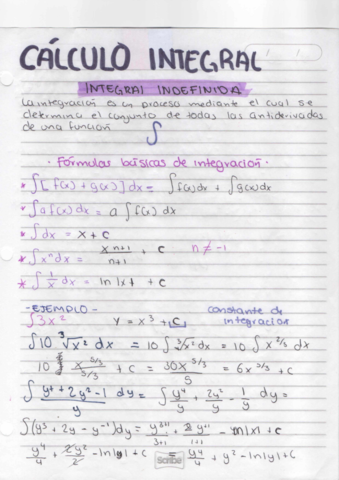 CÁLCULO INTEGRAL
INTEGRAL INDEFINIDA
La integración es un proceso mediante el cual se
determina el conjunto de todas las antiderivadas
de una función ∫
· Fórmulas básicas de integración ·
* ∫[f(x) + g(x)] dx = ∫f(x)dx + ∫g(x)dx
* ∫a f(x) dx = a ∫f(x) dx
* ∫dx = x + c
* ∫xⁿdx = xⁿ⁺¹/n+1 + c n ≠ -1
* ∫ 1/x dx = ln|x| + c
-EJEMPLO-
∫3x² y = x³ + C constante de integracion
∫10 ³√x² dx = 10 ∫³√x² dx = 10 ∫x^2/3 dx
10 x^5/3 / 5/3 + c = 30x^5/3 / 5 = 6x^5/3 + c
∫ y⁴ + 2y² - 1 / y dy = ∫ y⁴/y + 2y²/y - 1/y dy =
∫(y³ + 2y - y⁻¹)dy = y³⁺¹/3+1 + 2 y¹⁺¹/1+1 - ln|x| + c
y⁴/4 + 2y²/2 - ln|y| + c = y⁴/4 + y² - ln|y| + c
Scribe